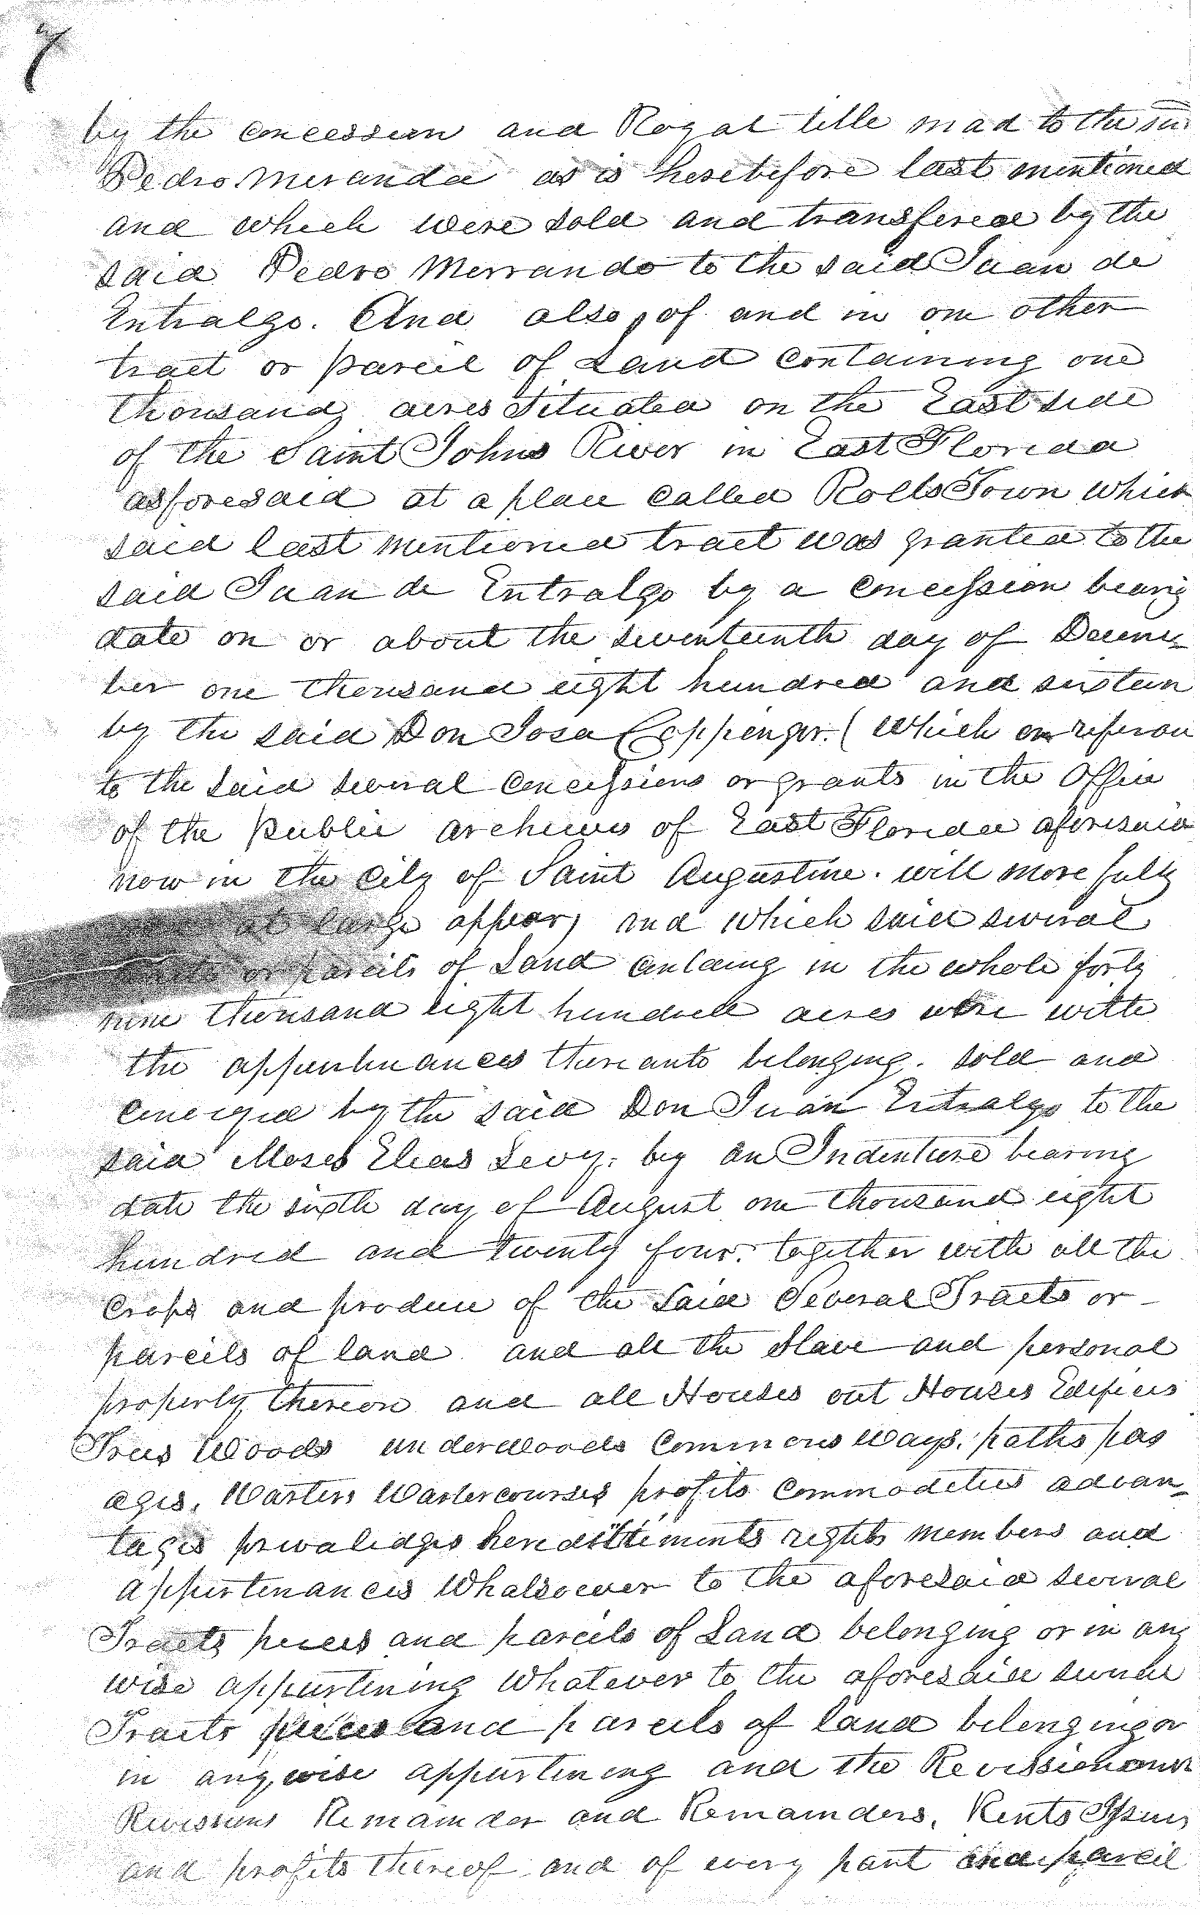 7
by the concession and Royal title mad to the
Pedro Meranda as is herebefore last mentioned
and which were sold and transfered by the
said Pedro Merrando to the said Juan de
Entralgo. And also, of and in one other
tract or parcil of Land containing one
thousand acres Situated on the East side
of the Saint Johns River in East Florida
asforesaid at a place called Rolls Town which
said last mentioned tract was granted to the
said Juan de Entralgo by a concession bearig
date on or about the seventeenth day of Decem-
ber one thousand eight hundred and sixteen
by the said Don Josa Coppinger. (which on
to the said several concessions or grants in the Office
of the public archieves of East Florida aforesaid
now in the City of Saint Augustine. will more fully
at large appear) and which said several
or parcils of Land containg in the whole forty
nine thousand eight hundred acres were with
the appurtenances thereunto belonging. sold and
by the said Don Juan Entralgo to the
said Moses Elias Levy. by an Indenture bearing
date the sixth day of August one thousand eight
hundred and twenty four. together with all the
Crops and produce of the said Several Tracts or
parcils of land and all the Slave and personal
property thereon and all Houses out Houses Edifices
Trees Woods underwoods Commons Ways. paths pas
ages. Warters Wartercourses profits commodities advan-
tages privaliedges heredittiments rights members and
appurtenances Whatsoever to the aforesaid several
Tracts pieces and parcils of Land belonging or in any
wise appurtining Whatever to the aforesaid several
Tracts pieces and parcels of land belonging or
in any wise appurtining and the
Revissions Remainder and Remainders, Rents Issues
and profits thereof and of every part and parcil